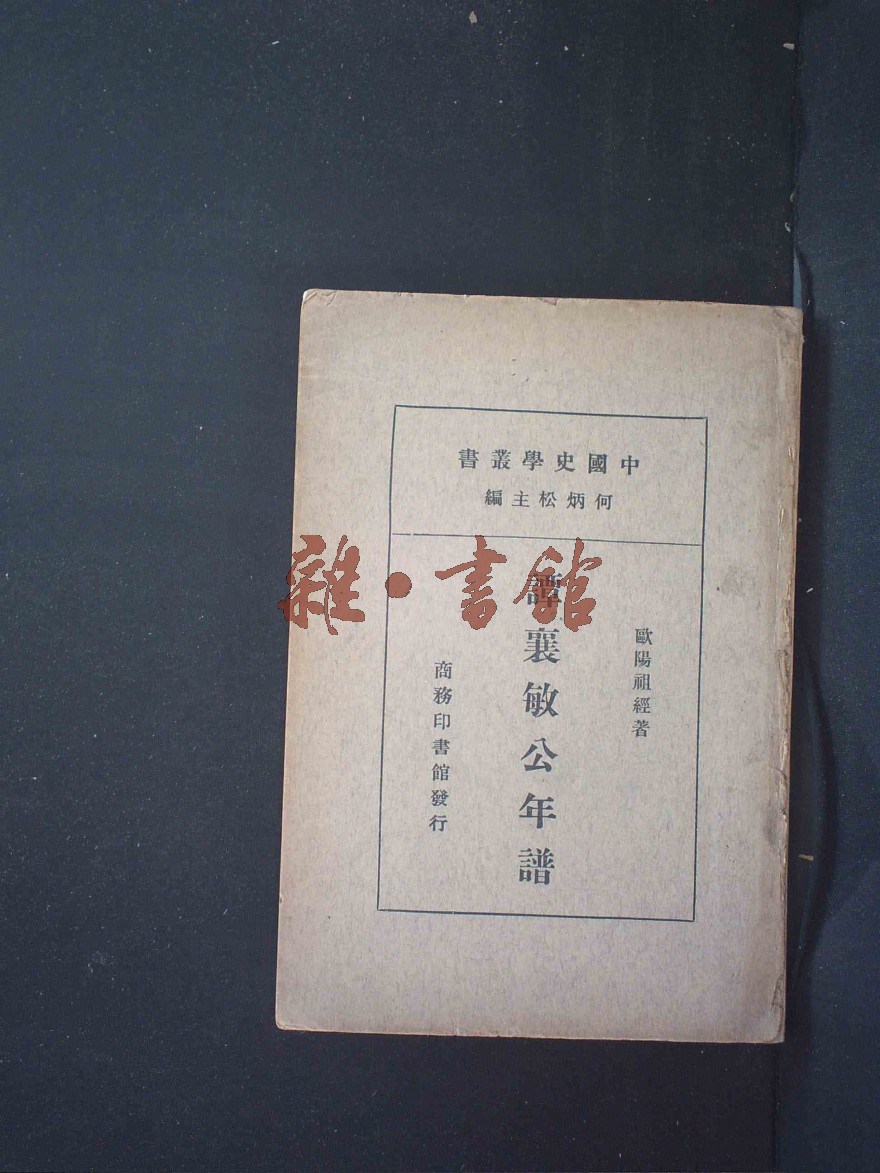 中國史學叢書
何炳松主編
歐陽祖經著
譚襄敏公年譜
商務印書館發行
雜·書館